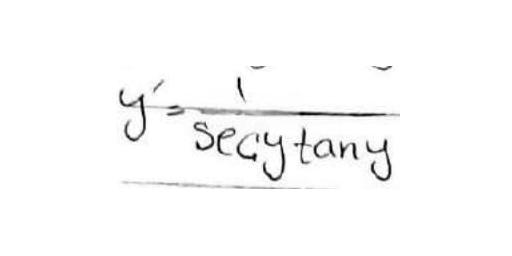 y' = 1 / sec y tan y